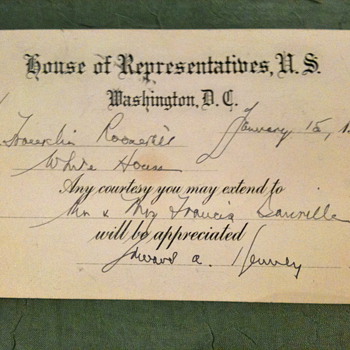 House of Representatives, U.S.
Washington, D.C.
January 15, 1
Franklin Roosevelt
White House
Any courtesy you may extend to
Mr & Mrs Francis
will be appreciated
Edward A. Kenney